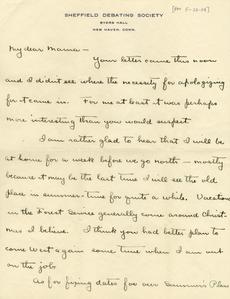 SHEFFIELD DEBATING SOCIETY
BYERS HALL
NEW HAVEN, CONN.
My dear Mama —
Your letter came this noon
and I didn't see where the necessity for apologizing
for it came in. For me at least it was perhaps
more interesting than you would suspect
I am rather glad to hear that I will be
at home for a week before we go north — mostly
because it may be the last time I will see the old
place in summer-time for quite a while. Vacations
in the Forest Service generally come around Christ-
mas I believe. I think you had better plan to
come West again some time when I am out
on the job
As for fixing dates for our Summer's Plans